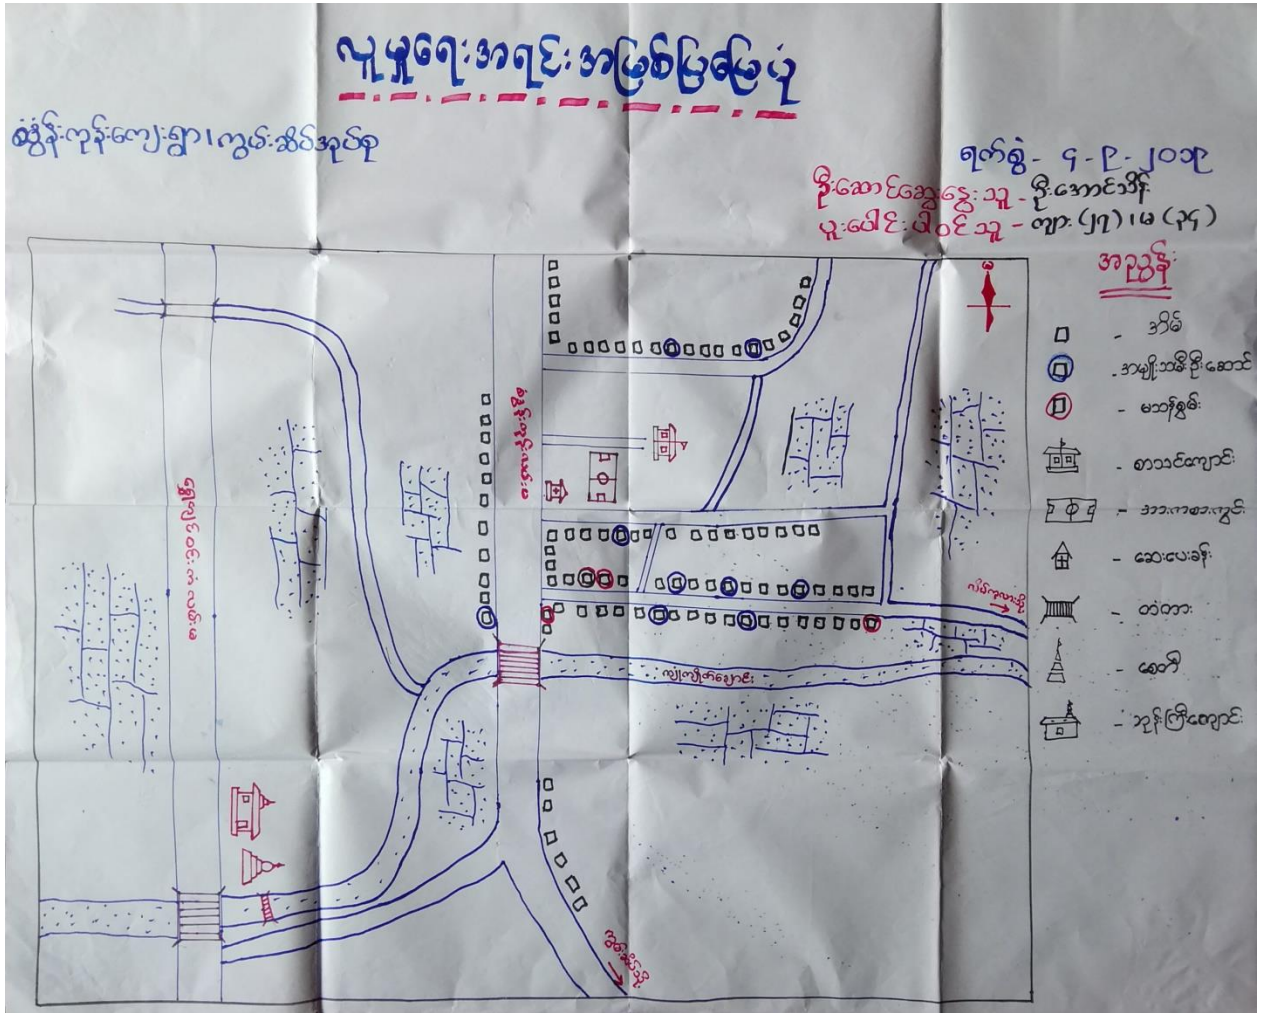 လူမှုရေးအရင်းအမြစ်ပြမြေပုံ
ဇွန်းကုန်းကျေးရွာ၊ ကွမ်းဆိပ်အုပ်စု
ရက်စွဲ - ၄-၉-၂၀၁၉
ဦးဆောင်ဆွေးနွေးသူ - ဦးအောင်သိန်း
ပူးပေါင်းပါဝင်သူ - ကျား (၂၇)၊ မ (၃၄)
အညွှန်း
အိမ်
အမျိုးသမီးဦးဆောင်
မသန်စွမ်း
စာသင်ကျောင်း
အားကစားကွင်း
ဆေးပေးခန်း
တံတား
စေတီ
ဘုန်းကြီးကျောင်း